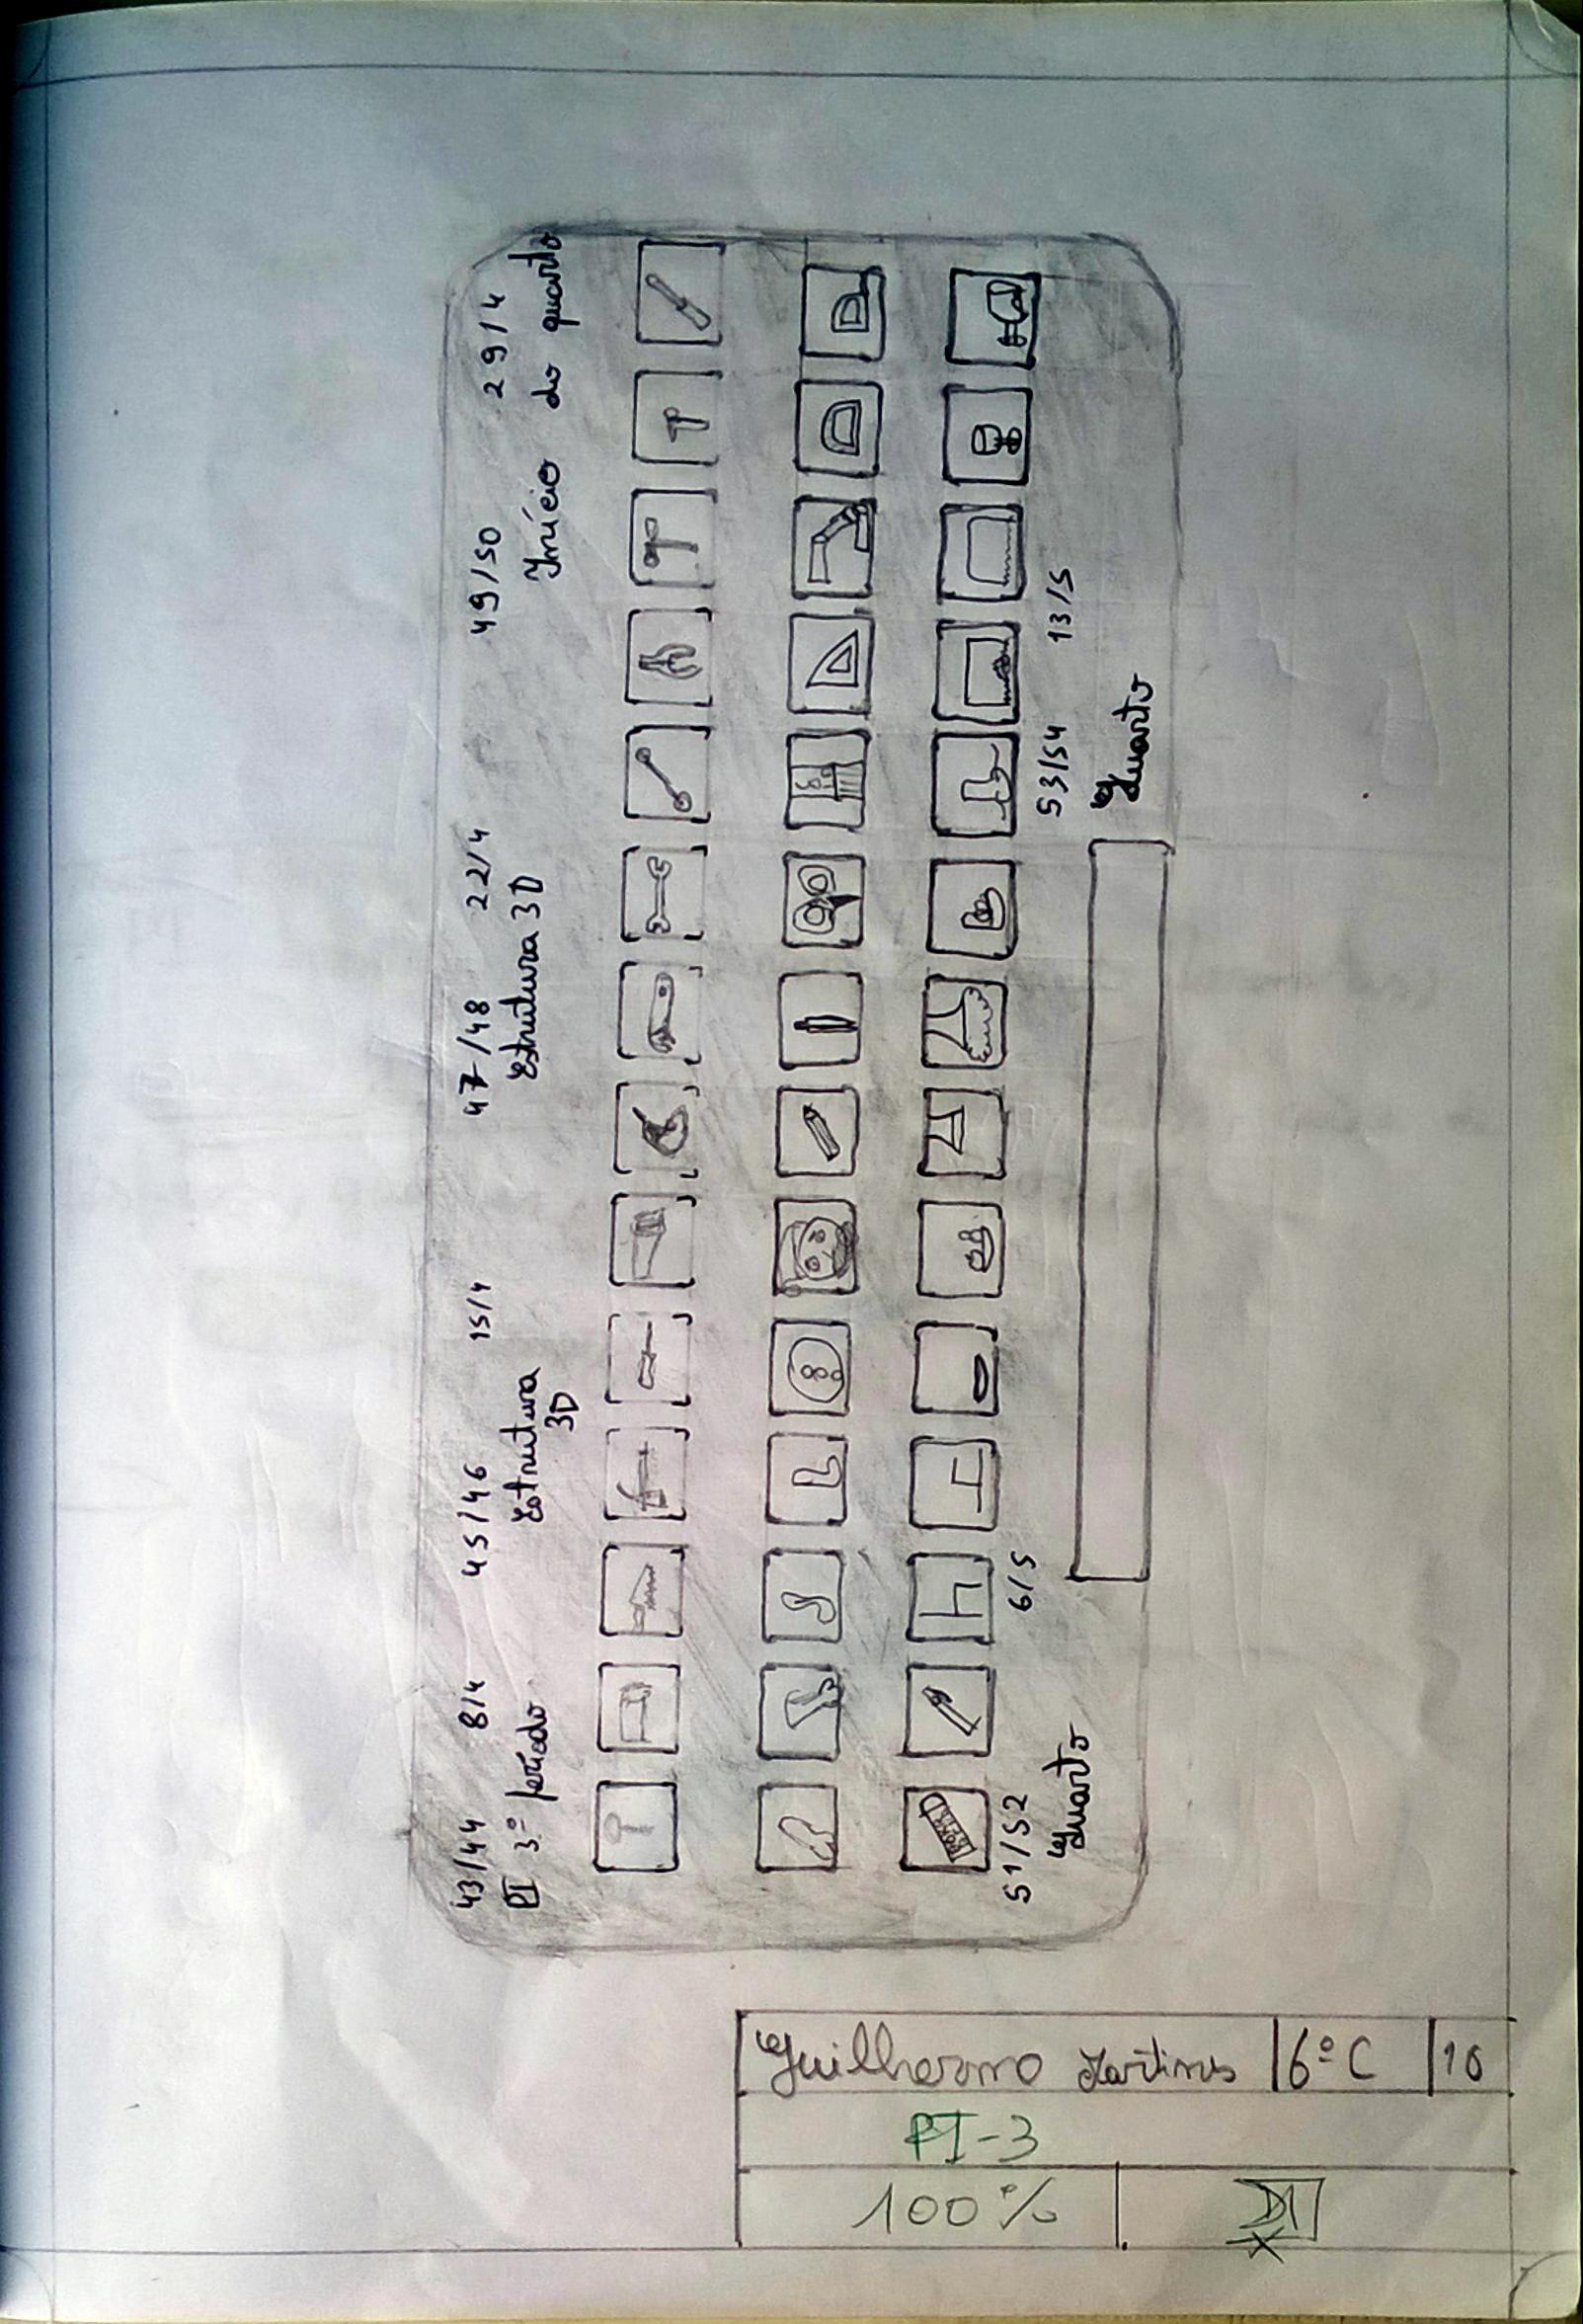 43/44 8/4
PI 3º período
45/46 15/4
Estrutura
3D
47/48 22/4
Estrutura 3D
49/50 29/4
Início do quarto
51/52 6/5
Quarto
53/54 13/5
Quarto
Guilherme Martins 6º C 10
PI-3
100%